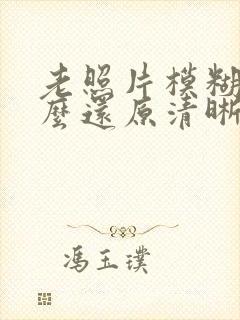 老照片模糊
麼還原清晰
馮玉璞